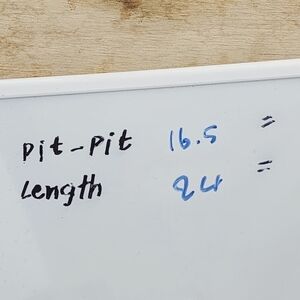 pit-pit 16.5 "
Length 24 "